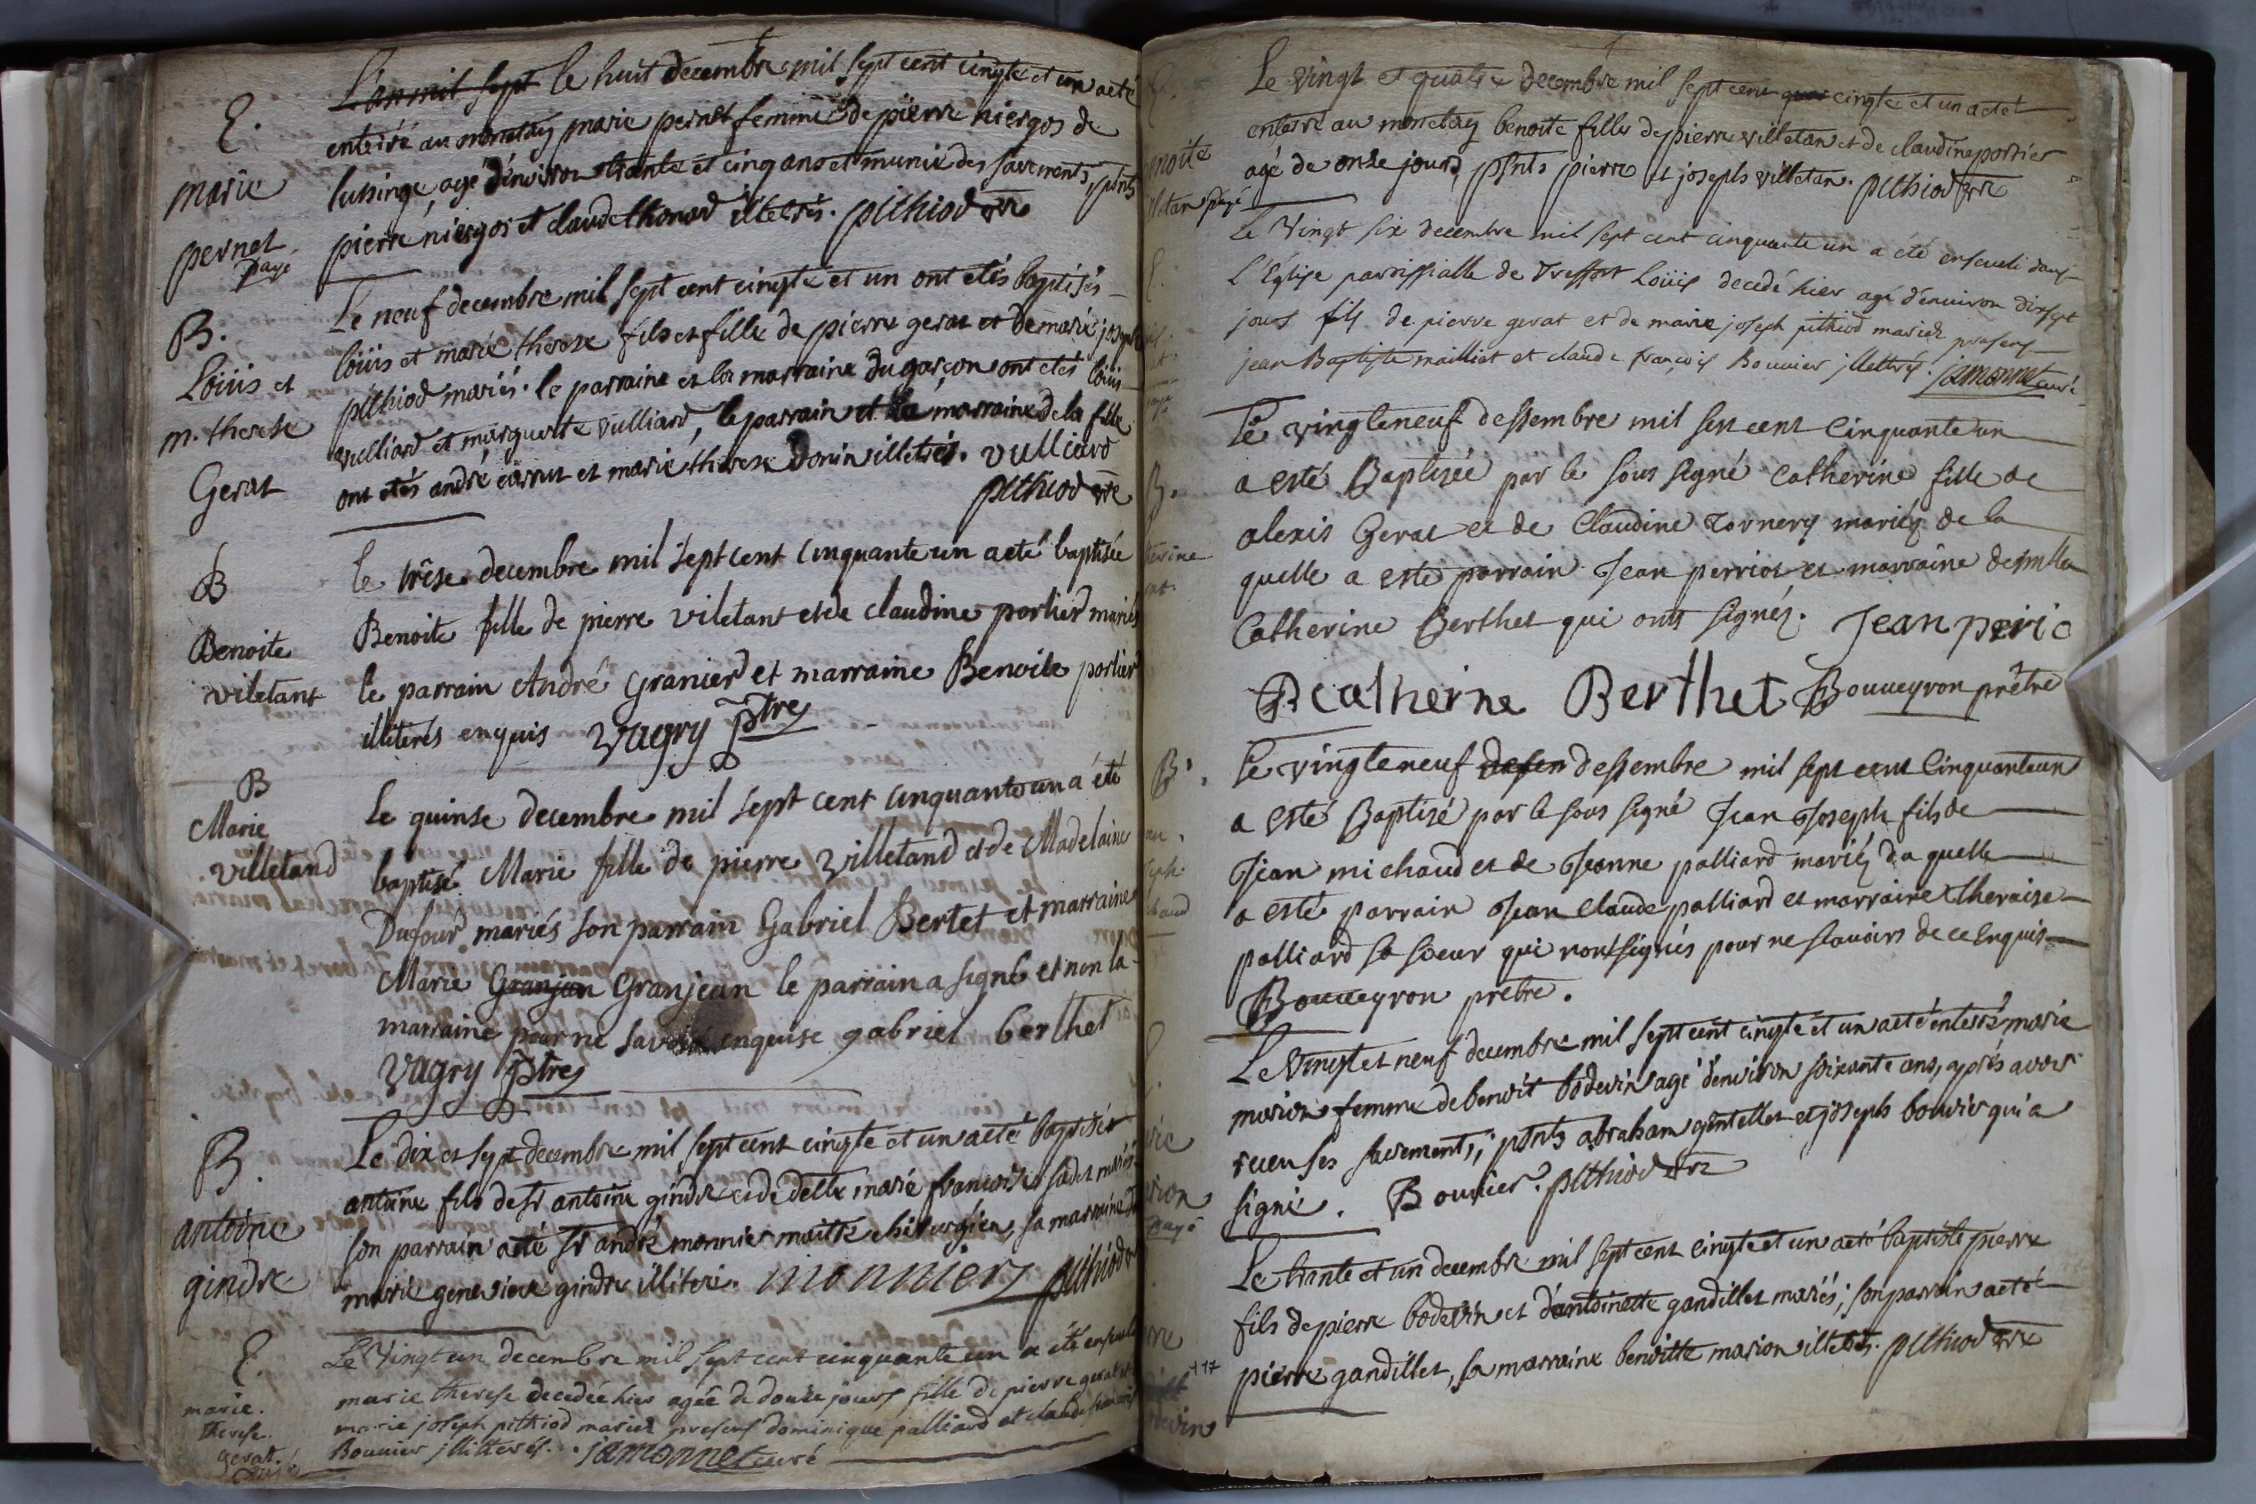 E.
marie
pernet
payé
L'an mil sept le huit decembre mil sept cent cinqte et un a eté
enterré au monetay marie pernet femme de pierre niergos de
lussinge, agé d'environ trante et cinq ans et munie des sacrements, pnts
pierre niergos et claude thonard illetrés. pithiod vre
B.
Loüis et
m. therese
Gerat
Le neuf decembre mil sept cent cinqte et un ont etés baptisés
loüis et marie therese fils et fille de pierre gerat et de marie joseph
pithiod mariés. le parraine et la marraine du garçon ont etés loüis
vulliard et marguerite vulliard, le parrain et la marraine de la fille
ont etés andré carrut et marie therese donin illetrés. vulliard
pithiod vre
B
Benoite
viletant
le trêse decembre mil sept cent cinquante un a eté baptisée
Benoite fille de pierre viletant et de claudine portier mariés
le parrain André Granier et marraine Benoite portier
illiterés enquis Vagry Ptre
B
Marie
villetand
Le quinse decembre mil sept cent cinquante un a été
baptisé Marie fille de pierre villetand et de Madelaine
Dufour mariés son parrain Gabriel Bertet et marraine
Marie Granjan Granjean le parrain a signé et non la
marraine pour ne savoir enquise gabriel berthet
Vagry Ptre
B.
antoine
gindre
Le dix et sept decembre mil sept cent cinqte et un a eté baptisé
antoine fils de sr antoine gindre et de delle marie françoise sadet mariés
son parrain a eté sr andré monnier maitre chirurgien, sa marraine
marie genevieve gindre illiteré. monnier pithiod
E.
marie.
therese.
gerat.
Le Vingt un decembre mil sept cent cinquante un a été enseveli
marie therese decedée hier agée de douze jours fille de pierre gerat et
marie joseph pithiod mariez presens dominique palliard et claude françois
Bouvier illitterés. jamonnet curé
Le vingt et quatre decembre mil sept cent quar cinqte et un a eté
enterré au monetay benoite fille de pierre villetan et de claudine portier
agé de onze jours, pnts pierre et joseph villetan. pithiod vre
Le Vingt six decembre mil sept cent cinquante un a été enseveli dans
L'Eglise parroissialle de Treffort Loüis decedé hier agé d'environ dixsept
jours fils de pierre gerat et de marie joseph pithiod mariez presens
jean Baptiste mailliat et claude françois Bouvier illettrés. jamonnet curé
Le vingteneuf dessembre mil sest cent Cinquante un
a esté Baptizée par le sous signé Catherine fille de
alexis Gerat et de Claudine Tornery mariéz de la
quelle a este parrain Jean perriot et marraine demlla
Catherine Berthet qui onts signéz. Jean peric
B catherine Berthet Bouveyron prêtre
Le vingteneuf desen dessembre mil sept cent Cinquanteun
a esté Baptizé par le sous signé Jean Joseph fils de
Jean michaud et de Jeanne palliard mariéz da quelle
a esté parrain Jean Claude palliard et marraine theraize
palliard sa soeur qui nont signés pour ne scauoirs de ce Enquis
Bouveyron prêtre.
Le Vingt et neuf decembre mil sept cent cinqte et un a eté enterré marie
marion femme de benoit bodevin agé d'environ soixante ans, après avoir
receu ses sacrements; pnts abraham gentellet et joseph bouvier qui a
signé. Bouvier. pithiod vre
Le trante et un decembre mil sept cent cinqte et un a eté baptisté pierre
fils de pierre bodevin et d'antoinette gandillet mariés; son parrain a eté
pierre gandillet, sa marraine benoitte marion illetrés. pithiod vre